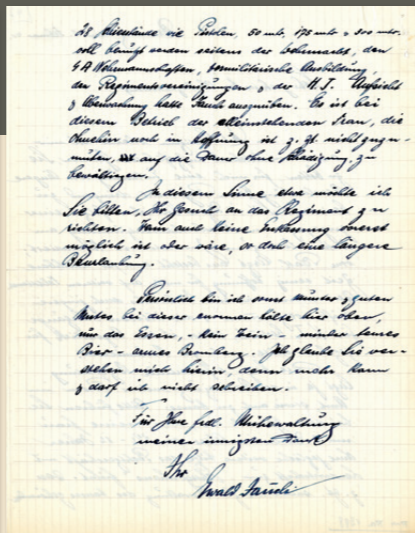 28 Schießstände wie Pistolen, 50 mtr., 175 mtr. & 300 mtr.
voll benützt werden seitens der Wehrmacht, den
SA Wehrmannschaften, vormilitärische Ausbildung,
der Regimentsvereinigungen & der H.J. Aufsicht
& Überwachung hatte Fauch auszuüben. Es ist bei
diesem Betrieb der alleinstehenden Frau, die
ohnehin noch in Hoffnung ist z. Zt. nicht zuzu-
muten, auf die Dauer ohne Schädigung, zu
bewältigen.
In diesem Sinne etwa möchte ich
Sie bitten, Ihr Gesuch an das Regiment zu
richten. Wenn auch keine Entlassung vorerst
möglich ist oder wäre, so doch eine längere
Beurlaubung.
Persönlich bin ich sonst munter & guten
Mutes bei dieser enormen Kälte hier oben,
nur das Essen, - kein Wein - minder teures
Bier - armes Bromberg. Ich glaube Sie ver-
stehen mich hierin, denn mehr kann
& darf ich nicht schreiben.
Für Ihre frdl. Mühewaltung
meinen innigsten Dank
Ihr
Ewald